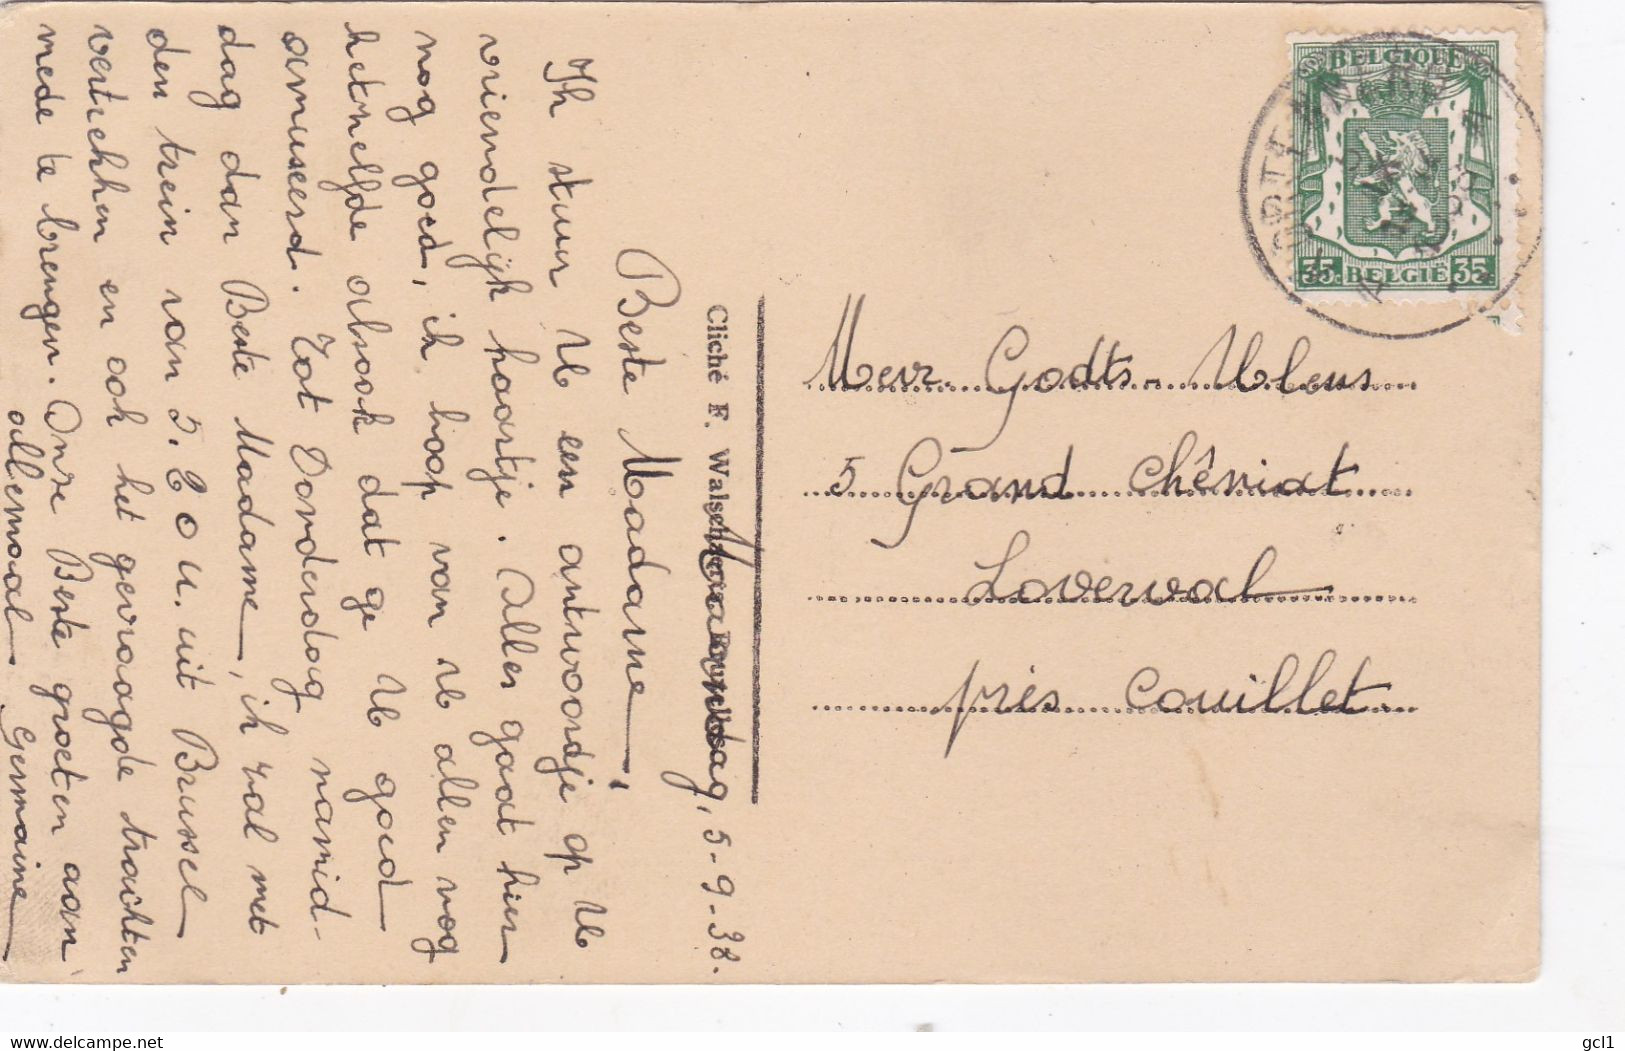 Maandag, 5-9-38.
Beste Madame,
Ik stuur U een antwoordje op U
vriendelijk kaartje. Alles gaat hier
nog goed, ik hoop van U allen nog
hetzelfde alsook dat ge U goed
amuseerd. Tot Donderdag namid-
dag dan Beste Madame, ik zal met
den trein van 5.20 u. uit Brussel
vertrekken en ook het gevraagde trachten
mede te brengen. Onze Beste groeten aan
allemaal Germaine
Cliché F.
BELGIQUE
35c BELGIË 35c
Mevr. Godts-Ulens
5 Grand Chêniat
Loverval
près Couillet.
www.delcampe.net
gcl1